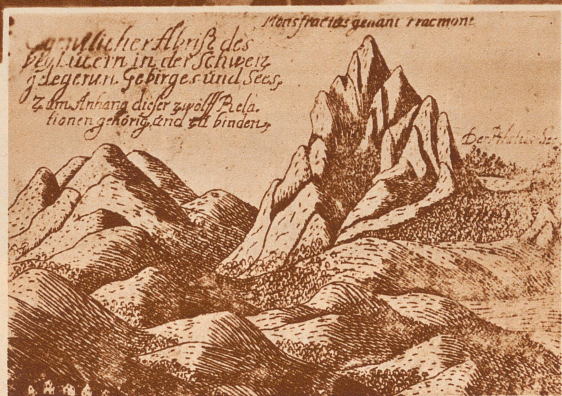 Mons fractus genant Fracmont
Eigentlicher Abriß des
bey Lucern in der Schweiz
gelegenen Gebirges und Sees,
Zum Anhang dieser zwölff Rela-
tionen gehörig, und zu binden,
Der See